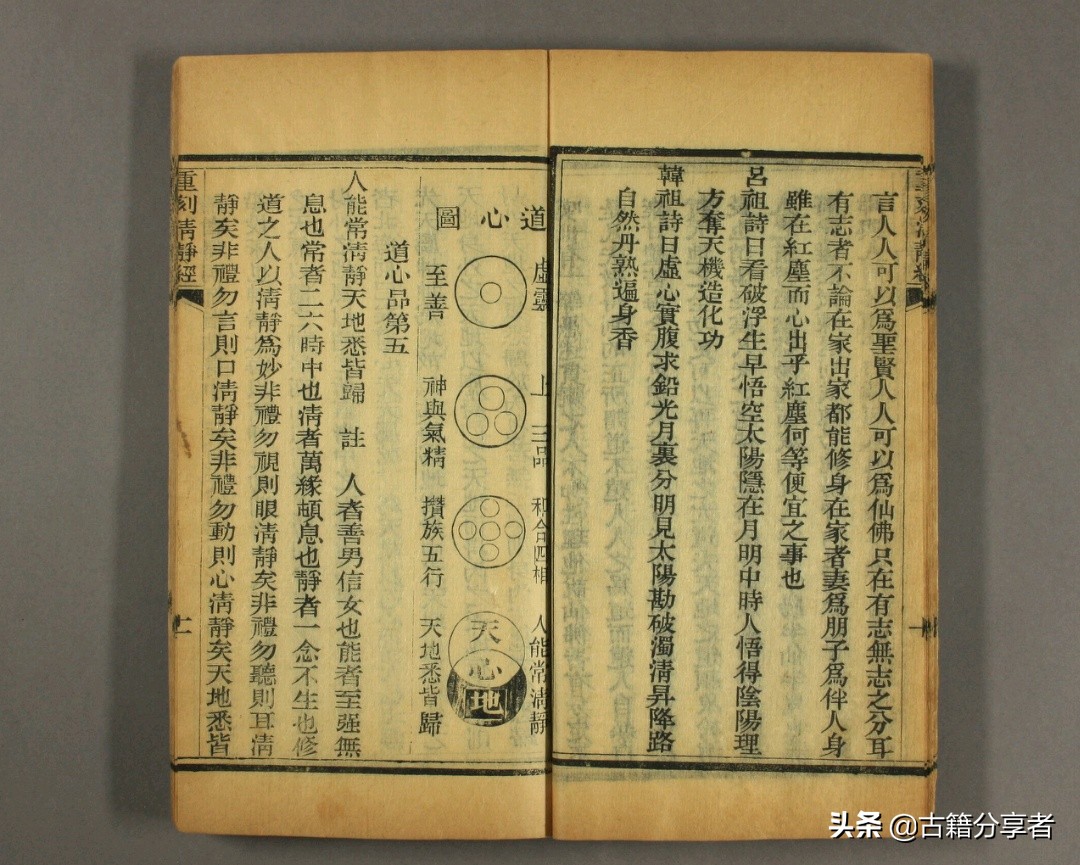 言人人可以爲聖賢人人可以爲仙佛只在有志無志之分耳
有志者不論在家出家都能修身在家者妻爲朋子爲伴人身
雖在紅塵而心出乎紅塵何等便宜之事也
呂祖詩曰看破浮生早悟空太陽隱在月明中時人悟得陰陽理
方奪天機造化功
韓祖詩曰虛心實腹求鉛光月裏分明見太陽勘破濁清昇降路
自然丹熟遍身香
道心圖
虛靈
上三品
和合四相
人能常清靜
天心地
至善
神與氣精
攢族五行
天地悉皆歸
道心品第五
人能常清靜天地悉皆歸 註 人者善男信女也能者至强無
息也常者二六時中也清者萬緣頓息也靜者一念不生也修
道之人以清靜爲妙非禮勿視則眼清靜矣非禮勿聽則耳清
靜矣非禮勿言則口清靜矣非禮勿動則心清靜矣天地悉皆
重刻清靜經
二
头条 @古籍分享者